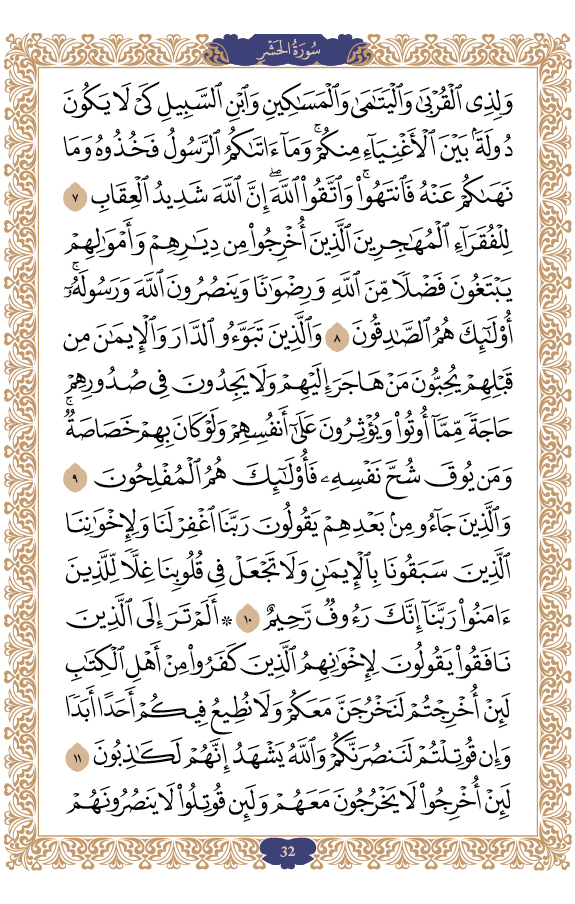 سُورَةُ الحَشْرِ
وَلِذِي ٱلْقُرْبَىٰ وَٱلْيَتَٰمَىٰ وَٱلْمَسَٰكِينِ وَٱبْنِ ٱلسَّبِيلِ كَىْ لَا يَكُونَ
دُولَةًۢ بَيْنَ ٱلْأَغْنِيَآءِ مِنكُمْ ۚ وَمَآ ءَاتَىٰكُمُ ٱلرَّسُولُ فَخُذُوهُ وَمَا
نَهَىٰكُمْ عَنْهُ فَٱنتَهُوا۟ ۚ وَٱتَّقُوا۟ ٱللَّهَ ۖ إِنَّ ٱللَّهَ شَدِيدُ ٱلْعِقَابِ ٧
لِلْفُقَرَآءِ ٱلْمُهَٰجِرِينَ ٱلَّذِينَ أُخْرِجُوا۟ مِن دِيَٰرِهِمْ وَأَمْوَٰلِهِمْ
يَبْتَغُونَ فَضْلًا مِّنَ ٱللَّهِ وَرِضْوَٰنًا وَيَنصُرُونَ ٱللَّهَ وَرَسُولَهُۥٓ ۚ
أُو۟لَٰٓئِكَ هُمُ ٱلصَّٰدِقُونَ ٨ وَٱلَّذِينَ تَبَوَّءُو ٱلدَّارَ وَٱلْإِيمَٰنَ مِن
قَبْلِهِمْ يُحِبُّونَ مَنْ هَاجَرَ إِلَيْهِمْ وَلَا يَجِدُونَ فِى صُدُورِهِمْ
حَاجَةً مِّمَّآ أُوتُوا۟ وَيُؤْثِرُونَ عَلَىٰٓ أَنفُسِهِمْ وَلَوْ كَانَ بِهِمْ خَصَاصَةٌ ۚ
وَمَن يُوقَ شُحَّ نَفْسِهِۦ فَأُو۟لَٰٓئِكَ هُمُ ٱلْمُفْلِحُونَ ٩
وَٱلَّذِينَ جَآءُو مِنۢ بَعْدِهِمْ يَقُولُونَ رَبَّنَا ٱغْفِرْ لَنَا وَلِإِخْوَٰنِنَا
ٱلَّذِينَ سَبَقُونَا بِٱلْإِيمَٰنِ وَلَا تَجْعَلْ فِى قُلُوبِنَا غِلًّا لِّلَّذِينَ
ءَامَنُوا۟ رَبَّنَآ إِنَّكَ رَءُوفٌ رَّحِيمٌ ١٠ ۞ أَلَمْ تَرَ إِلَى ٱلَّذِينَ
نَافَقُوا۟ يَقُولُونَ لِإِخْوَٰنِهِمُ ٱلَّذِينَ كَفَرُوا۟ مِنْ أَهْلِ ٱلْكِتَٰبِ
لَئِنْ أُخْرِجْتُمْ لَنَخْرُجَنَّ مَعَكُمْ وَلَا نُطِيعُ فِيكُمْ أَحَدًا أَبَدًا
وَإِن قُوتِلْتُمْ لَنَنصُرَنَّكُمْ وَٱللَّهُ يَشْهَدُ إِنَّهُمْ لَكَٰذِبُونَ ١١
لَئِنْ أُخْرِجُوا۟ لَا يَخْرُجُونَ مَعَهُمْ وَلَئِن قُوتِلُوا۟ لَا يَنصُرُونَهُمْ
32